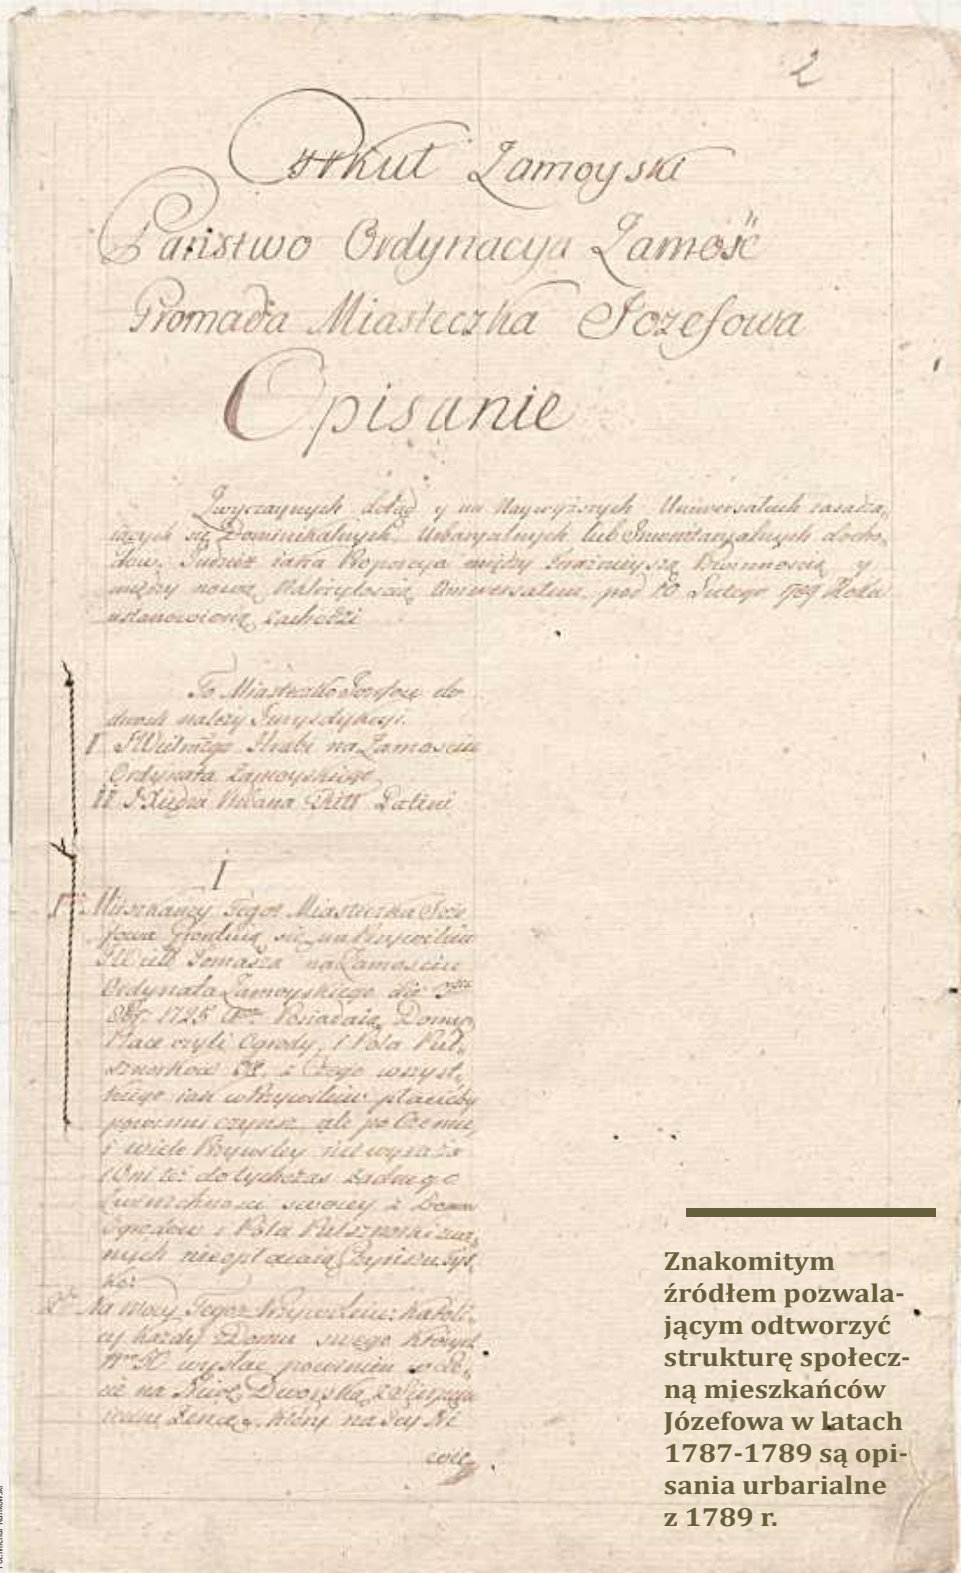 2
Cyrkuł Zamoyski
Państwo Ordynacya Zamość
Gromada Miasteczka Jozefowa
Opisanie
Zwyczaynych dotąd y na Naywyższych Uniwersałach zasadza-
iących się Dominikalnych, Urbaryalnych lub Inwentaryalnych docho-
dow. Tudzież iaka Proporcya między Powinnością y
między nową Uniwersałem pod 10 Lutego 1789 Roku
ustanowioną zachodzi
To Miasteczko Jozefow do
dwoch należy Jurysdykcyi.
I JWielmożnego Hrabi na Zamościu
Ordynata Zamoyskiego
II
I
Mieszkańcy Tegoż Miasteczka Joze-
fowa się na Przywileiu
JW Tomasza na Zamościu
Ordynata Zamoyskiego die
1725 Posiadaią Domy,
Place czyli Ogrody, i Pola
i z tego wszyst-
kiego iak w Przywileiu płacićby
powinni czynsz, ale po czemu,
i wiele Przywiley nie wyraża
i Oni też dotychczas żadnego
Zwierzchności swoiey z Domow
Ogrodow i Pola
nych nieopłacaią Czynszu, tyl-
ko:
Na mocy Tegoż Przywileiu: Katoli-
cy każdy z Domu swego
wysłać powinien
na Niwę Dworską
który na tey Ni
wie
Znakomitym
źródłem pozwala-
jącym odtworzyć
strukturę społecz-
ną mieszkańców
Józefowa w latach
1787-1789 są opi-
sania urbarialne
z 1789 r.